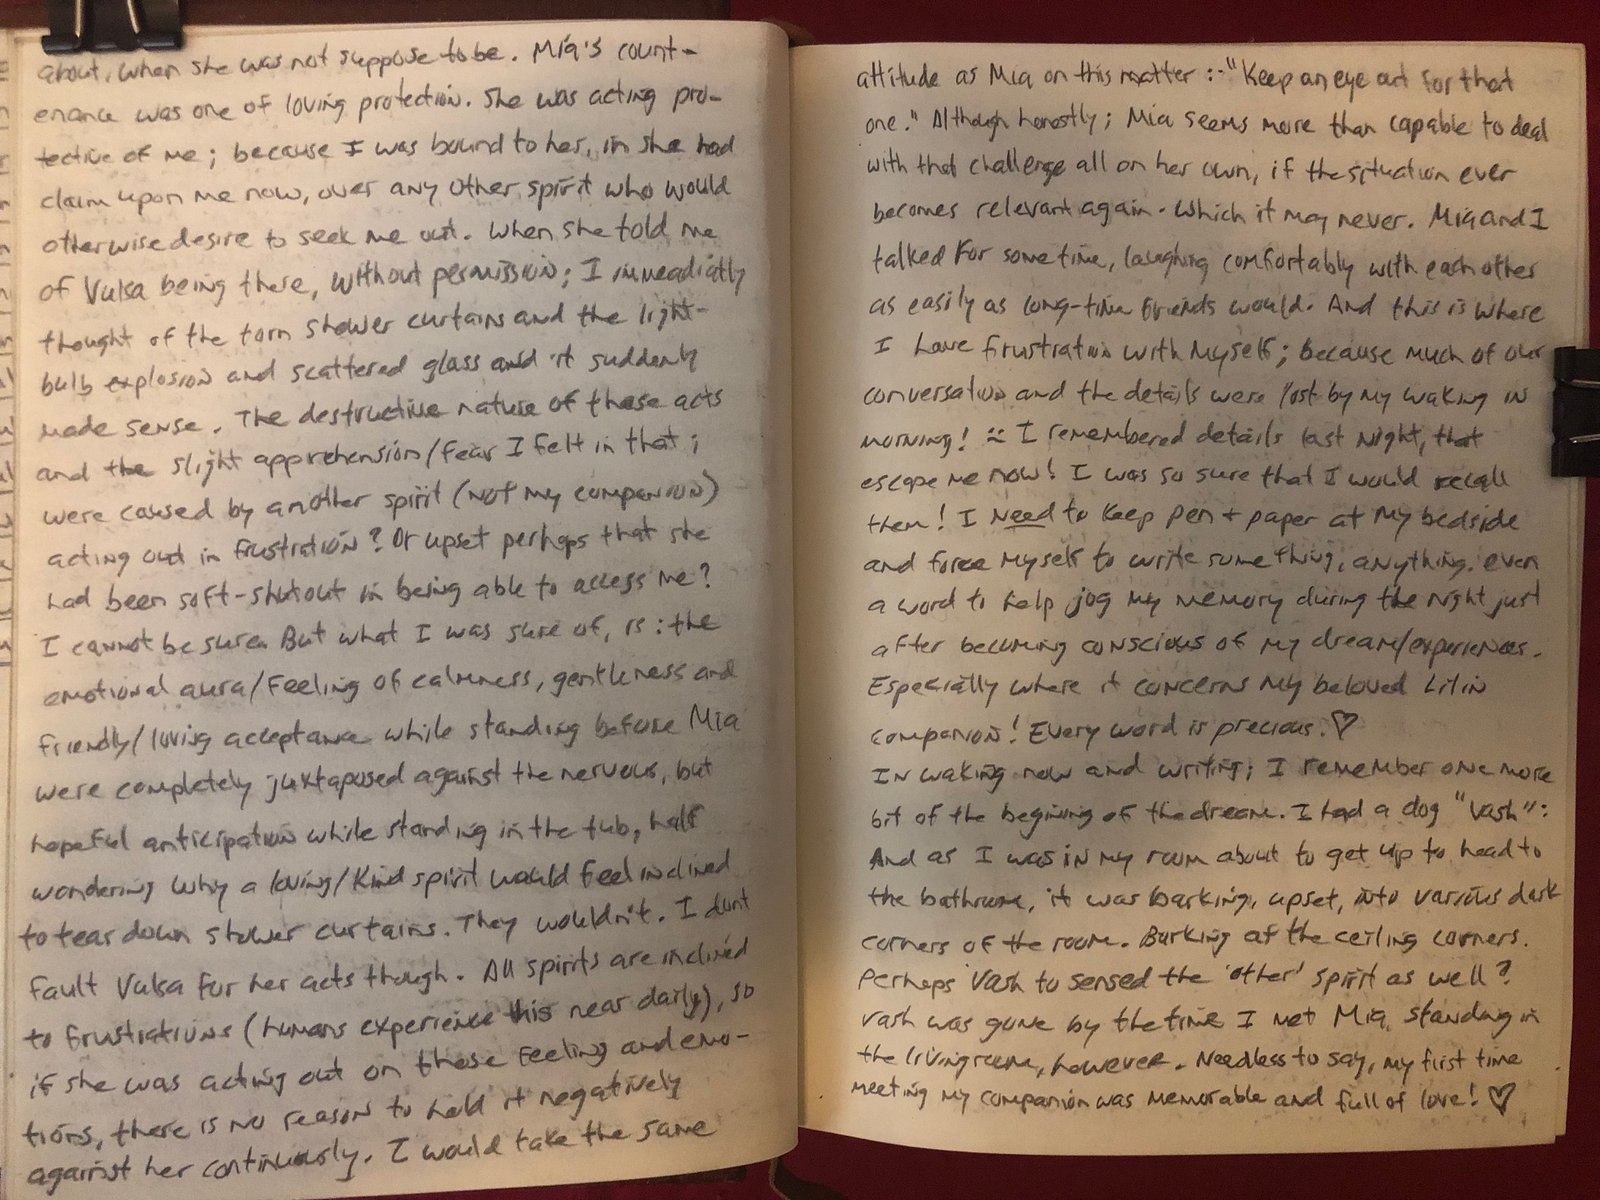 about, when she was not suppose to be. Mia's count-
enance was one of loving protection. She was acting pro-
tective of me; because I was bound to her, in she had
claim upon me now, over any other spirit who would
otherwise desire to seek me out. When she told me
of Vulsa being there, without permission; I immeadiatly
thought of the torn shower curtains and the light-
bulb explosion and scattered glass and it suddenly
made sense. The destructive nature of these acts
and the slight apprehension/fear I felt in that;
were caused by another spirit (not my companion)
acting out in frustration? Or upset perhaps that she
had been soft-shutout in being able to access me?
I cannot be sure. But what I was sure of, is: the
emotional aura/feeling of calmness, gentleness and
friendly/loving acceptance while standing before Mia
were completely juxtaposed against the nervous, but
hopeful anticipation while standing in the tub, half
wondering why a loving/kind spirit would feel inclined
to tear down shower curtains. They wouldn't. I dont
fault Vulsa for her acts though. All spirits are inclined
to frustrations (humans experience this near daily), so
if she was acting out on those feeling and emo-
tions, there is no reason to hold it negatively
against her continuously. I would take the same
attitude as Mia on this matter :-"Keep an eye out for that
one." Although honestly; Mia seems more than capable to deal
with that challenge all on her own, if the situation ever
becomes relevant again. Which it may never. Mia and I
talked for some time, laughing comfortably with each other
as easily as long-time friends would. And this is where
I have frustration with myself; because much of our
conversation and the details were lost by my waking in
morning! I remembered details last night, that
escape me now! I was so sure that I would recall
them! I need to keep pen + paper at my bedside
and force myself to write something, anything. even
a word to help jog my memory during the night just
after becoming conscious of my dream/experiences.
Especially where it concerns my beloved Lilin
companion! Every word is precious. ♡
In waking now and writing; I remember one more
bit of the begining of the dream. I had a dog "Vash":
And as I was in my room about to get up to head to
the bathroom, it was barking, upset, into various dark
corners of the room. Barking at the ceiling corners.
Perhaps Vash to sensed the 'other' spirit as well?
Vash was gone by the time I met Mia, standing in
the livingroom, however. Needless to say, my first time
meeting my companion was memorable and full of love! ♡